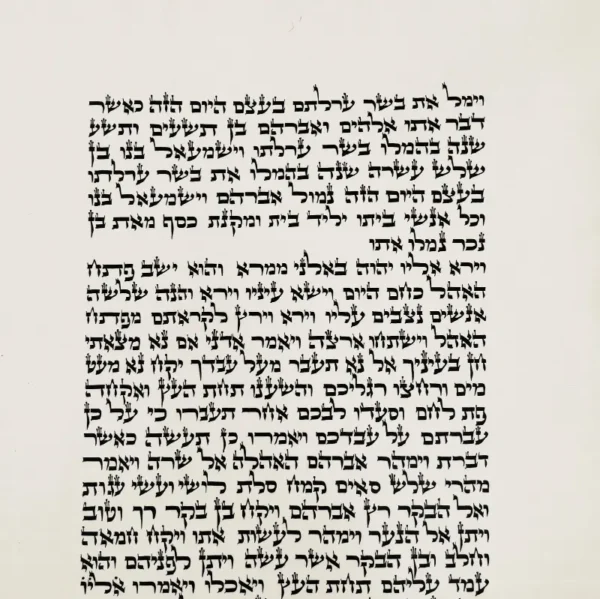 וימל את בשר ערלתם בעצם היום הזה כאשר
דבר אתו אלהים ואברהם בן תשעים ותשע
שנה בהמלו בשר ערלתו וישמעאל בנו בן
שלש עשרה שנה בהמלו את בשר ערלתו
בעצם היום הזה נמול אברהם וישמעאל בנו
וכל אנשי ביתו יליד בית ומקנת כסף מאת בן
נכר נמלו אתו
וירא אליו יהוה באלני ממרא והוא ישב פתח
האהל כחם היום וישא עיניו וירא והנה שלשה
אנשים נצבים עליו וירא וירץ לקראתם מפתח
האהל וישתחו ארצה ויאמר אדני אם נא מצאתי
חן בעיניך אל נא תעבר מעל עבדך יקח נא מעט
מים ורחצו רגליכם והשענו תחת העץ ואקחה
פת לחם וסעדו לבכם אחר תעברו כי על כן
עברתם על עבדכם ויאמרו כן תעשה כאשר
דברת וימהר אברהם האהלה אל שרה ויאמר
מהרי שלש סאים קמח סלת לושי ועשי עגות
ואל הבקר רץ אברהם ויקח בן בקר רך וטוב
ויתן אל הנער וימהר לעשות אתו ויקח חמאה
וחלב ובן הבקר אשר עשה ויתן לפניהם והוא
עמד עליהם תחת העץ ויאכלו ויאמרו אליו